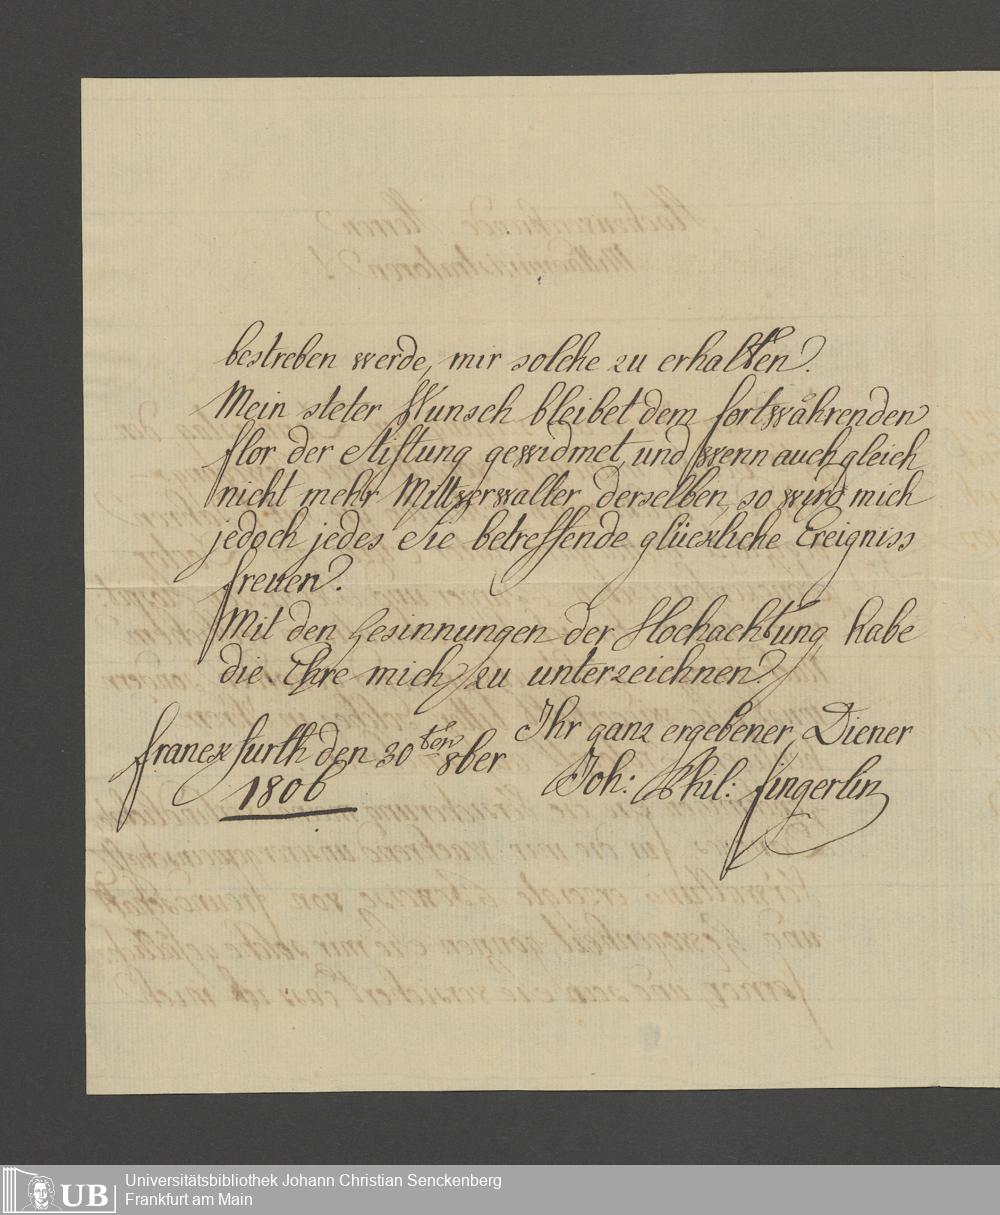 bestreben werde, mir solche zu erhalten.
Mein steter Wunsch bleibet dem fortwährenden
flor der Stiftung gewidmet, und wenn auch gleich
nicht mehr Mittverwalter derselben, so wird mich
jedoch jedes Sie betreffende glückliche Ereigniss
freuen.
Mit den Gesinnungen der Hochachtung habe
die Ehre mich zu unterzeichnen
Ihr ganz ergebener Diener
Joh: Phil: fingerlin
franckfurth den 30ten 8ber
1806
Universitätsbibliothek Johann Christian Senckenberg
Frankfurt am Main
UB